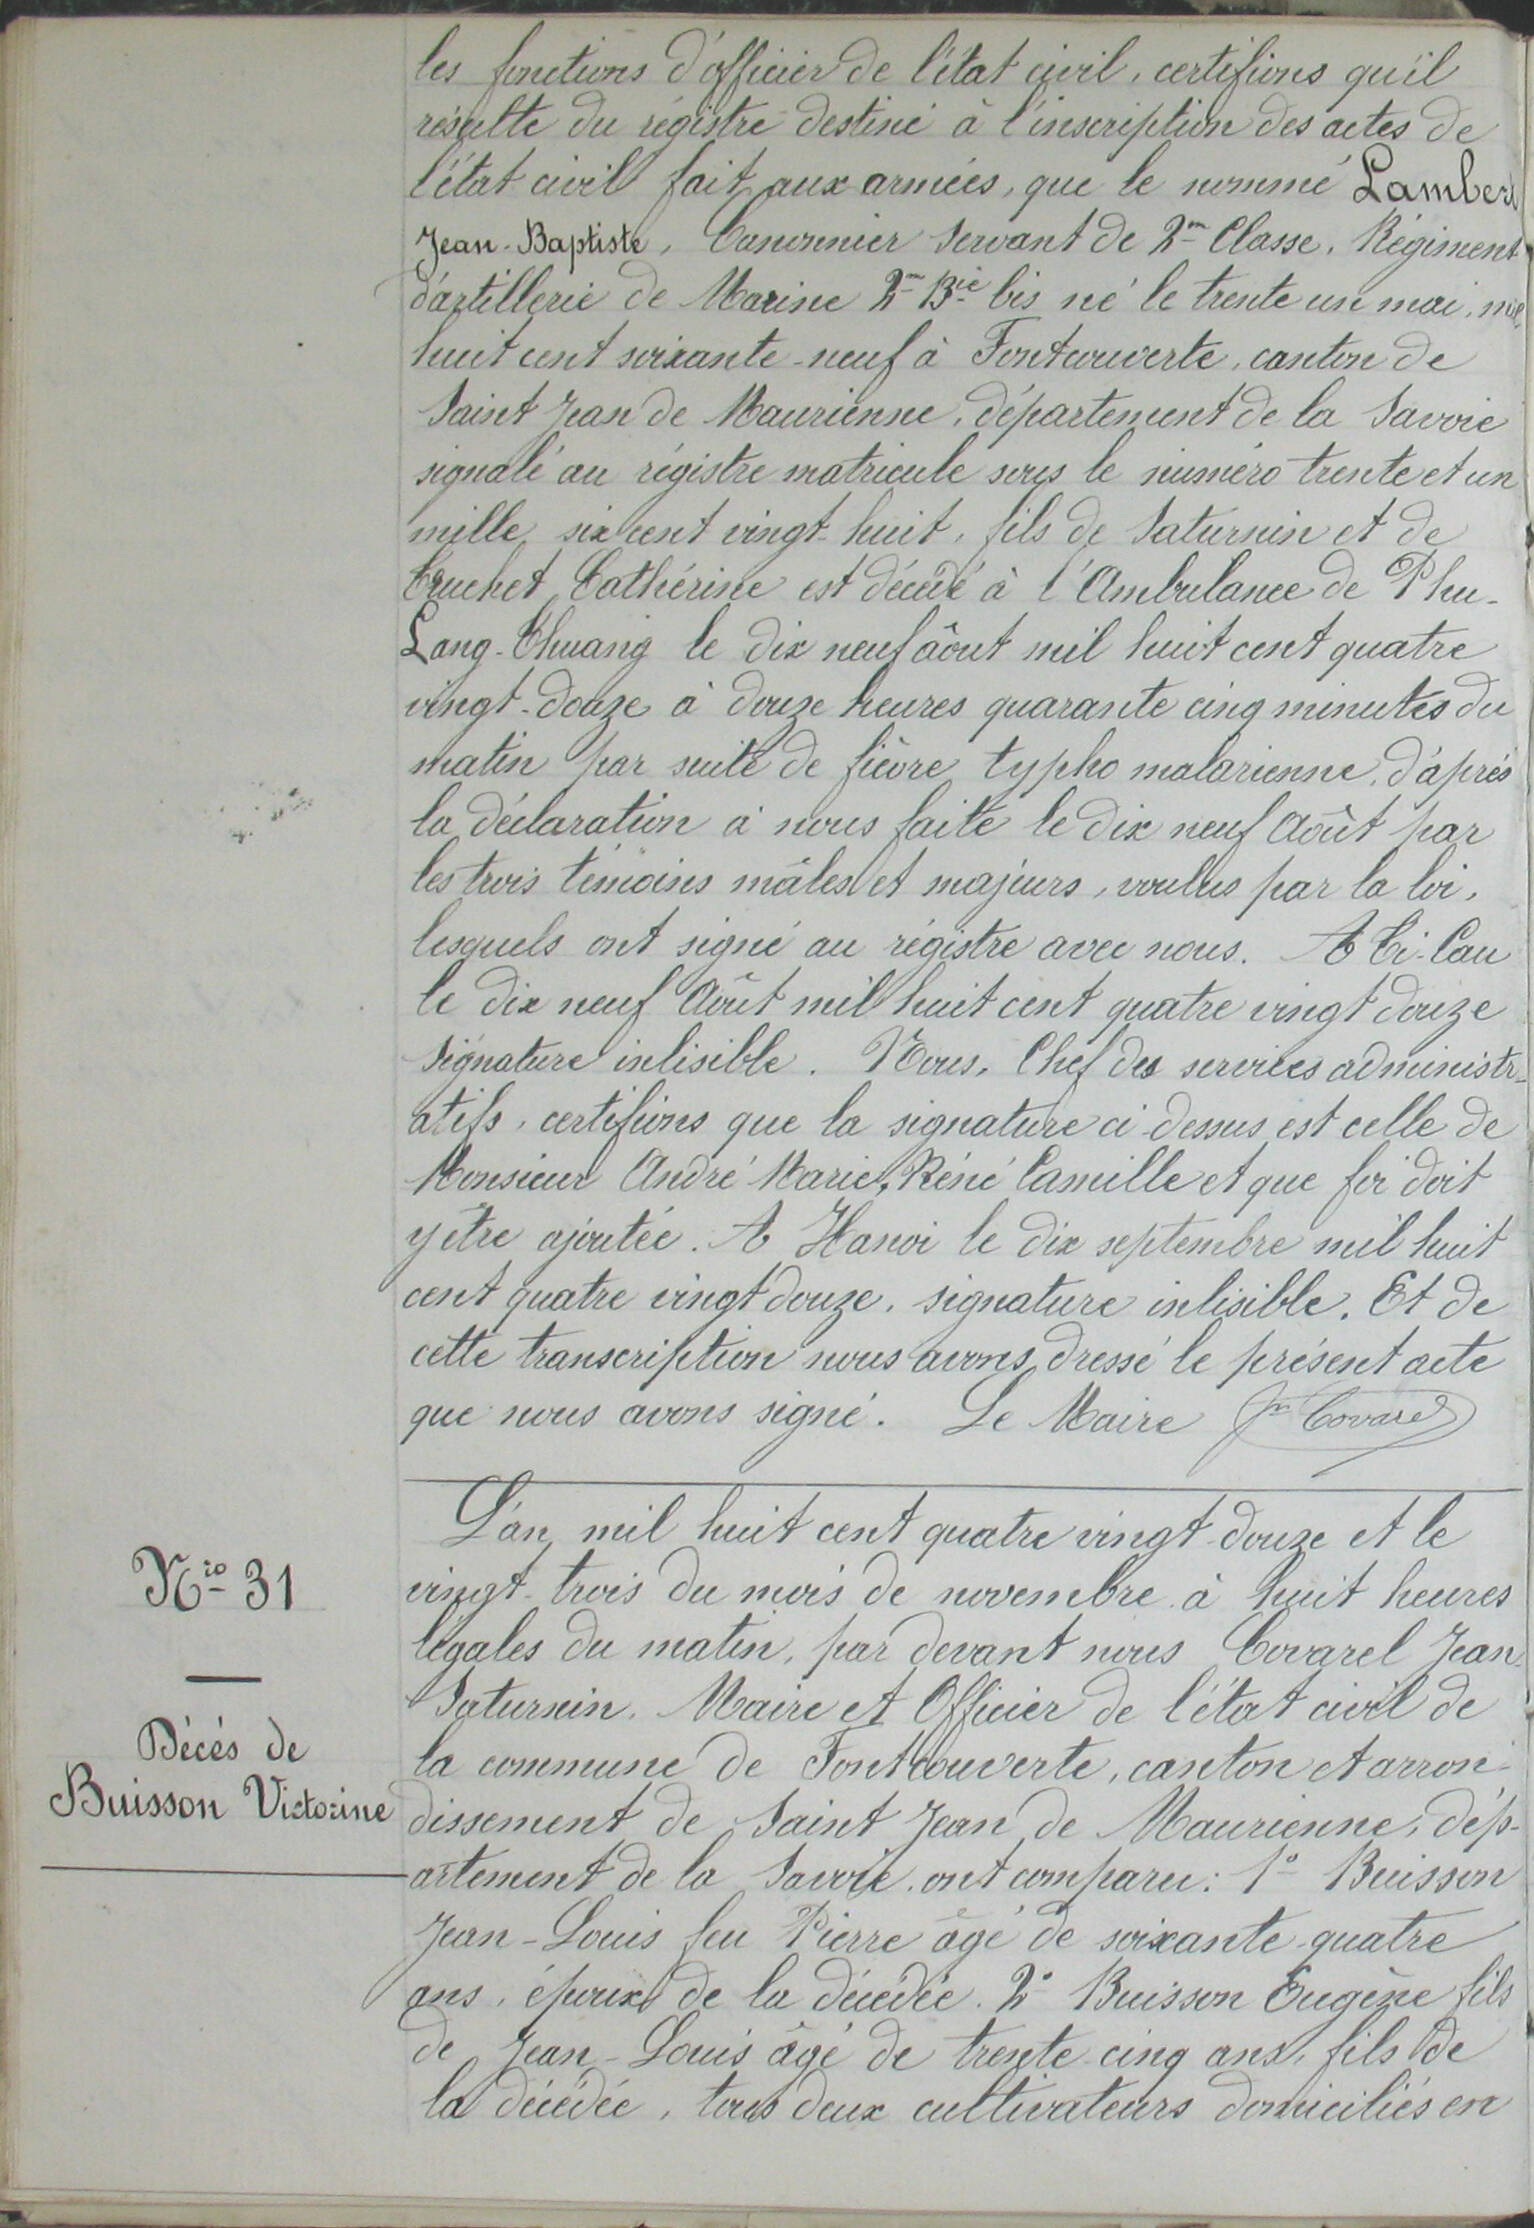 les fonctions d'officier de l'état civil, certifions qu'il
résulte du régistre destiné à l'inscription des actes de
l'état civil fait aux armées, que le nommé Lambert
Jean-Baptiste, Canonnier servant de 2me Classe, Régiment
d'artillerie de Marine 2me Bie bis né le trente un mai, mil
huit cent soixante-neuf à Fontcouverte, canton de
Saint Jean de Maurienne, département de la Savoie
signalé au régistre matricule sous le numéro trente et un
mille six cent vingt-huit, fils de Saturnin et de
Truchet Cathérine est décédé à l'Ambulance de Phu-
Lang-Thuang le dix neuf âout mil huit cent quatre
vingt-douze à douze heures quarante cinq minutes du
matin par suite de fièvre typho malarienne, d'après
la déclaration à nous faite le dix neuf Août par
les trois témoins mâles et majeurs, voulus par la loi,
lesquels ont signé au régistre avec nous. A Ti-Cau
le dix neuf Août mil huit cent quatre vingt douze
signature inlisible. Nous, Chef des services administr-
atifs, certifions que la signature ci-dessus est celle de
Monsieur André Marie, Réné Camille et que foi doit
y être ajoutée. A Hanoi le dix septembre mil huit
cent quatre vingt douze, signature inlisible. Et de
cette transcription nous avons dressé le présent acte
que nous avons signé. Le Maire Jn Covarel
L'an mil huit cent quatre vingt-douze et le
vingt-trois du mois de novembre à huit heures
légales du matin, par devant nous Covarel Jean
Saturnin, Maire et Officier de l'état civil de
la commune de Fontcouverte, canton et arron-
dissement de Saint Jean de Maurienne, dép-
artement de la Savoie, ont comparu: 1° Buisson
Jean-Louis feu Pierre âgé de soixante-quatre
ans, époux de la décédée. 2° Buisson Eugène fils
de Jean-Louis âgé de trente cinq ans, fils de
la décédée, tous deux cultivateurs domiciliés en
Nio 31
Décés de
Buisson Victorine